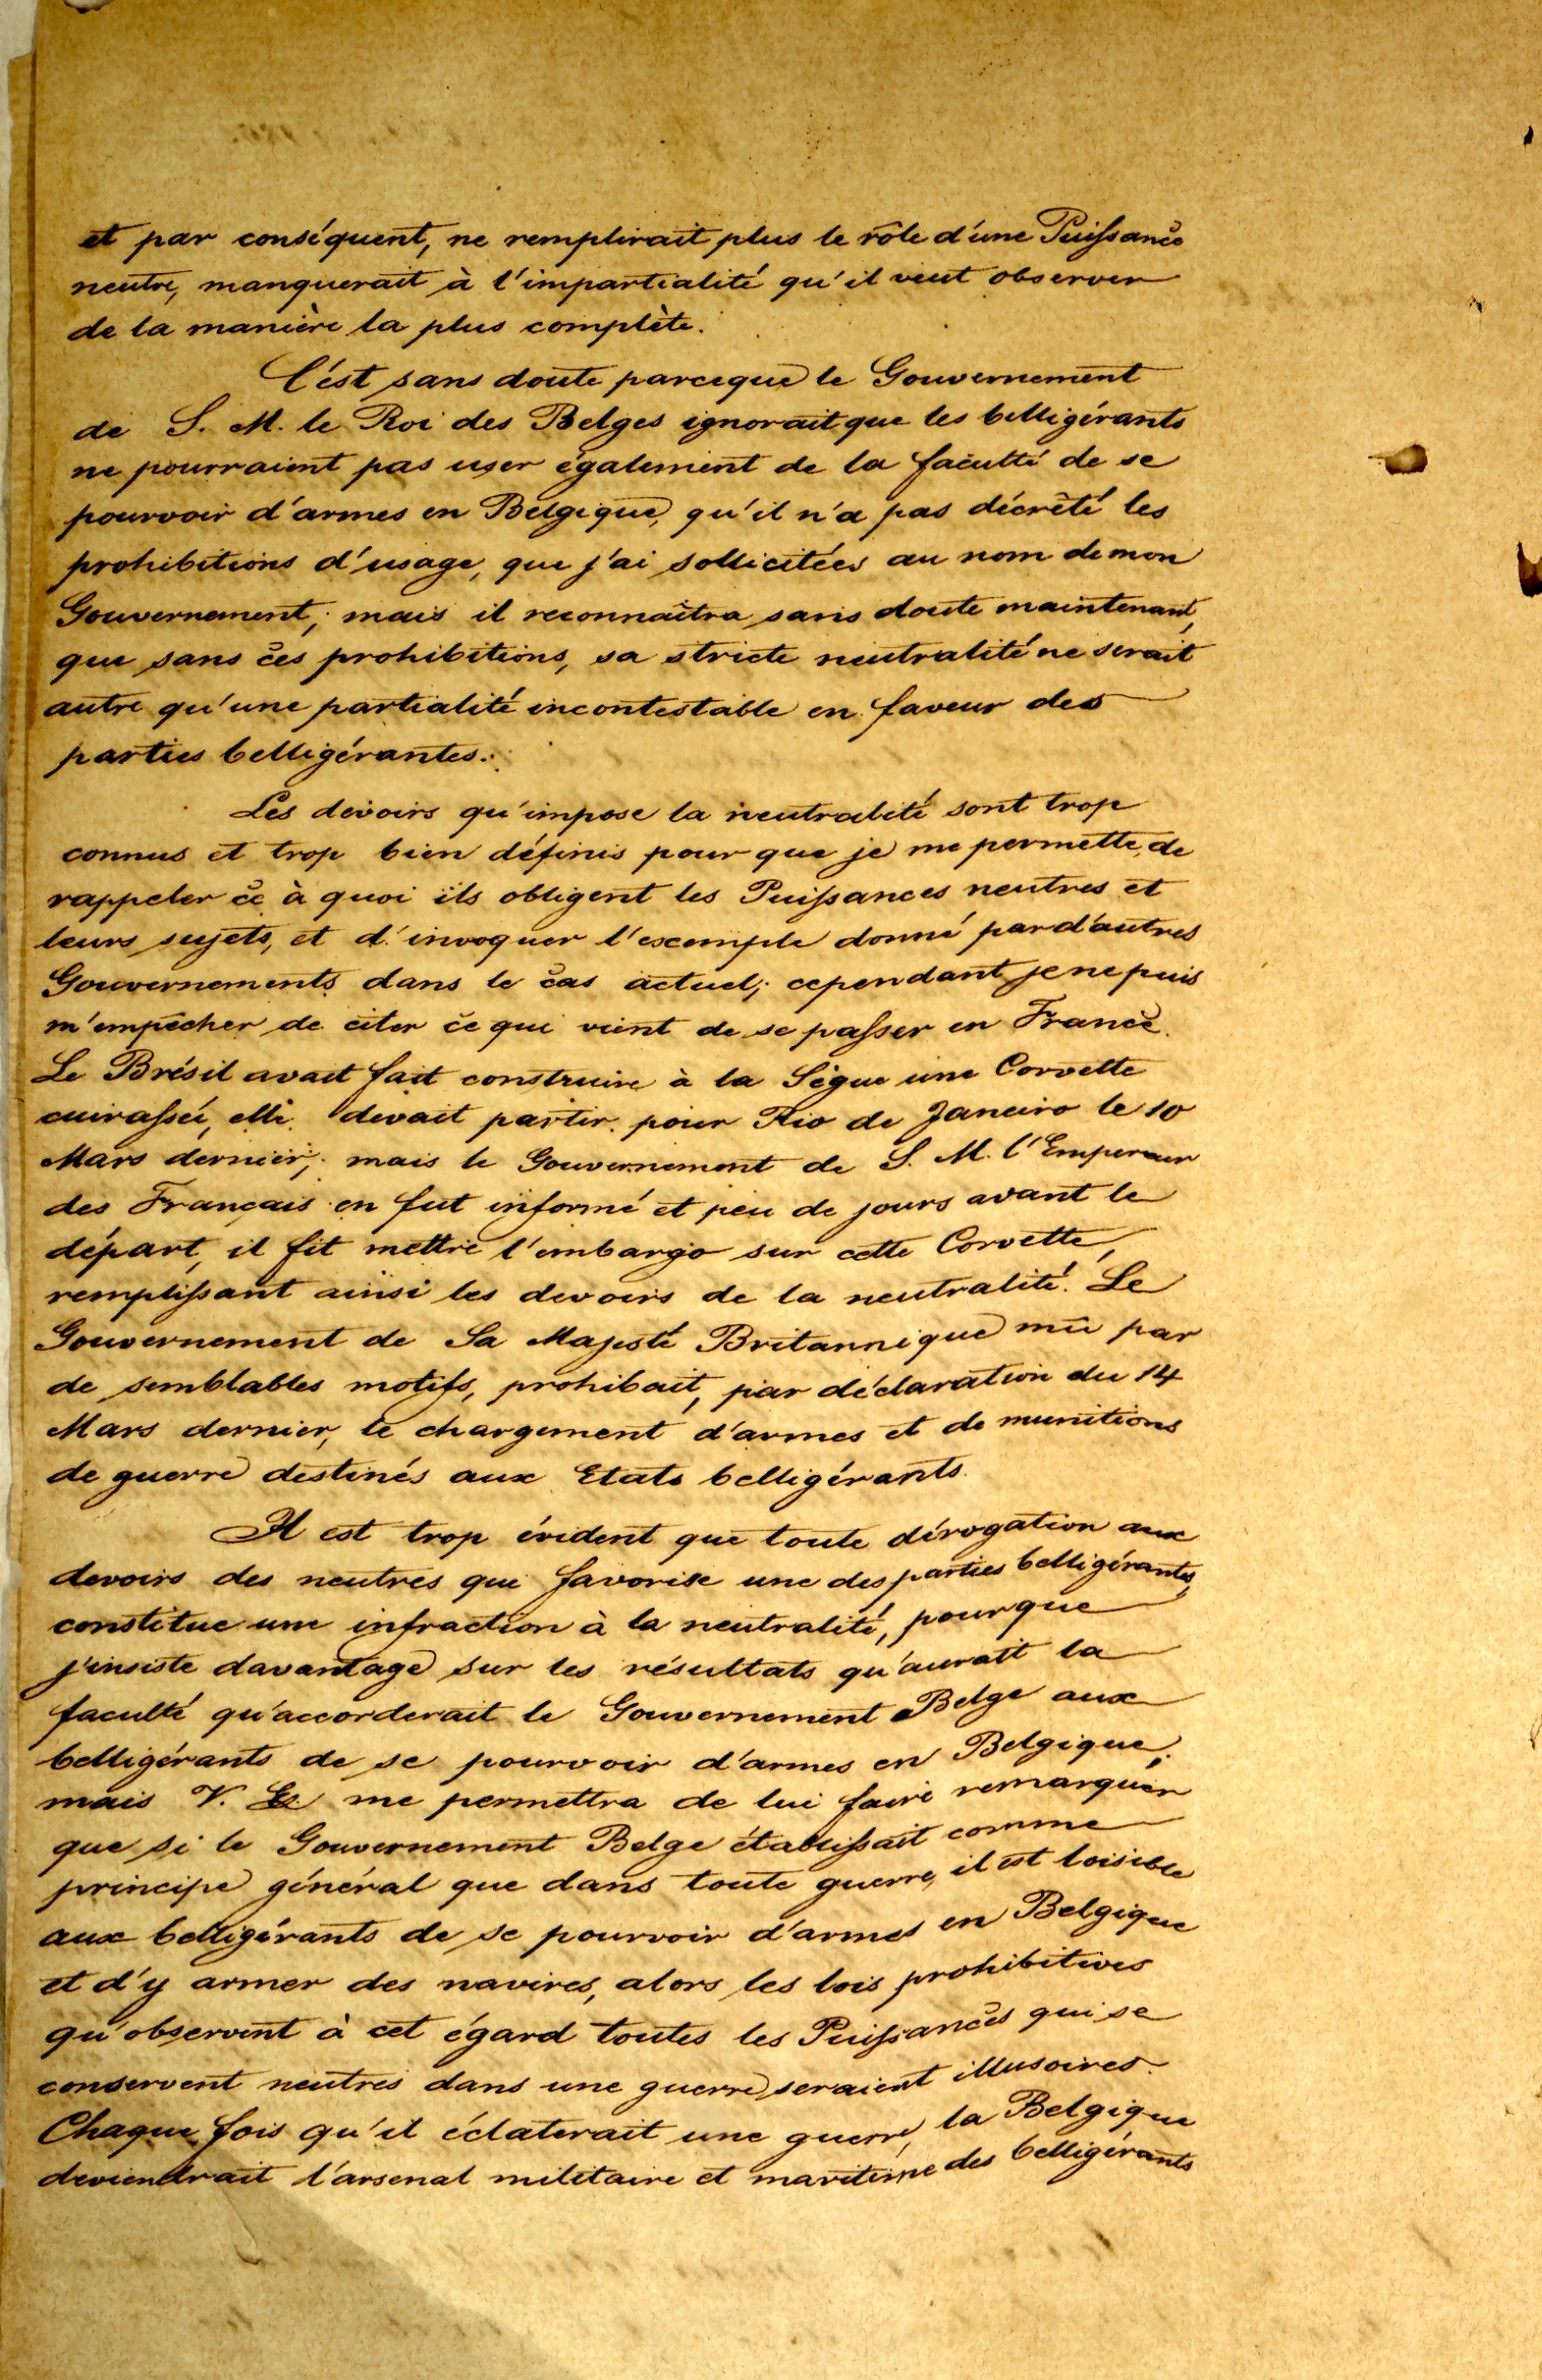 et par conséquent, ne remplirait plus le rôle d'une Puissance
neutre, manquerait à l'impartialité qu'il veut observer
de la manière la plus complète.
C'est sans doute parceque le Gouvernement
de S. M. le Roi des Belges ignorait que les belligérants
ne pourraient pas user également de la faculté de se
pourvoir d'armes en Belgique, qu'il n'a pas décrété les
prohibitions d'usage, que j'ai sollicitées au nom de mon
Gouvernement; mais il reconnaîtra sans doute maintenant,
que sans ces prohibitions, sa stricte neutralité ne serait
autre qu'une partialité incontestable en faveur des
parties belligérantes.
Les devoirs qu'impose la neutralité sont trop
connus et trop bien définis pour que je me permette de
rappeler ce à quoi ils obligent les Puissances neutres et
leurs sujets, et d'invoquer l'exemple donné par d'autres
Gouvernements dans le cas actuel; cependant je ne puis
m'empêcher de citer ce qui vient de se passer en France.
Le Brésil avait fait construire à la Sègue une Corvette
cuirassée, elle devait partir pour Rio de Janeiro le 10
Mars dernier; mais le Gouvernement de S. M. l'Empereur
des Français en fut informé et peu de jours avant le
départ, il fit mettre l'embargo sur cette Corvette,
remplissant ainsi les devoirs de la neutralité. Le
Gouvernement de Sa Majesté Britannique mû par
de semblables motifs, prohibait, par déclaration du 14
Mars dernier, le chargement d'armes et de munitions
de guerre destinés aux Etats belligérants.
Il est trop évident que toute dérogation aux
devoirs des neutres qui favorise une des parties belligérantes,
constitue une infraction à la neutralité, pour que
j'insiste davantage sur les résultats qu'aurait la
faculté qu'accorderait le Gouvernement Belge aux
belligérants de se pourvoir d'armes en Belgique;
mais V. E. me permettra de lui faire remarquer
que si le Gouvernement Belge établissait comme
principe général que dans toute guerre, il est loisible
aux belligérants de se pourvoir d'armes en Belgique
et d'y armer des navires, alors les lois prohibitives
qu'observent à cet égard toutes les Puissances qui se
conservent neutres dans une guerre seraient illusoires.
Chaque fois qu'il éclaterait une guerre, la Belgique
deviendrait l'arsenal militaire et maritime des belligérants